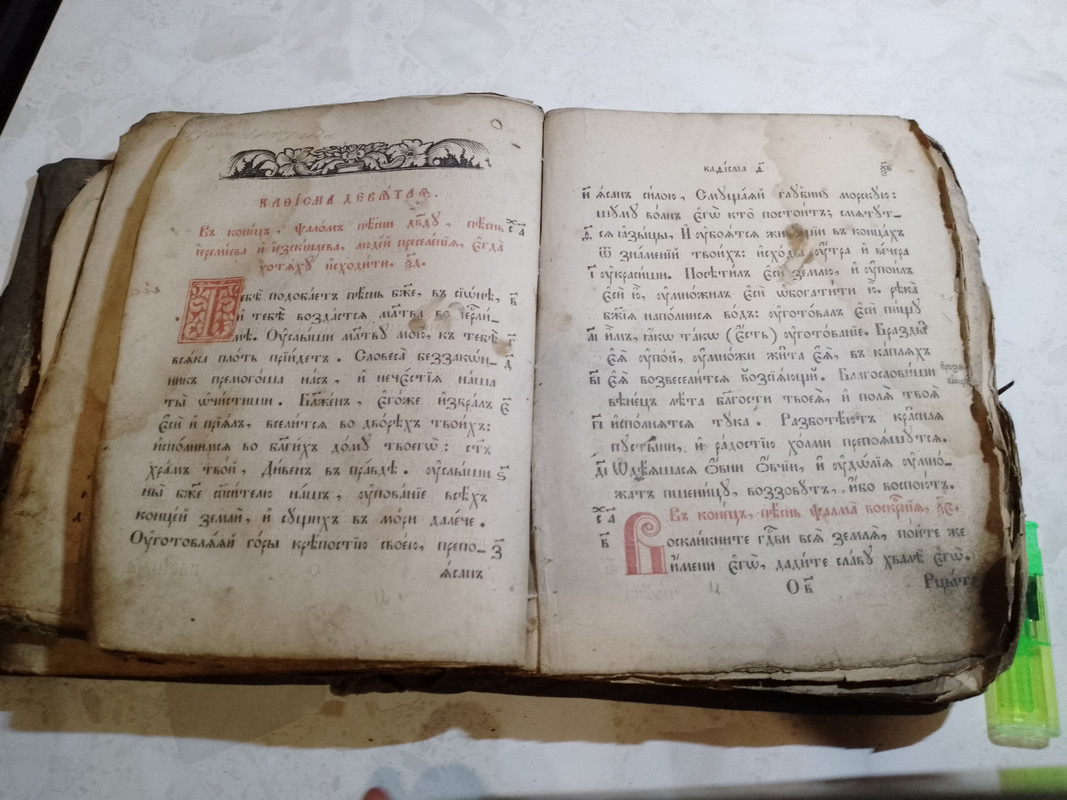 КАѲІСМА ДЕВѦТАѦ.
Въ конецъ, ѱаломъ пѣсни дв҃ду, пѣснь
і҆еремїева и҆ і҆езекі́илева, люде́й преселе́нїѧ, є҆гда̀
хотѧ́хꙋ и҆сходи́ти, ѯ҃д.
Тебѣ̀ подоба́етъ пѣ́снь бж҃е, въ сїѡ́нѣ, в҃
и҆ тебѣ̀ возда́стсѧ мл҃тва во і҆ерⷭ҇ли-
мѣ. Оу҆слы́ши мл҃твꙋ мою̀, къ тебѣ̀ г҃
всѧ́ка пло́ть прїи́детъ. Словеса̀ беззако́н- д҃
никъ премого́ша на́съ, и҆ нече́стїѧ на́ша
ты̀ ѡ҆чи́стиши. Бл҃же́нъ, є҆го́же и҆збра́лъ є҃
є҆сѝ и҆ прїѧ́лъ, всели́тсѧ во дво́рѣхъ твои́хъ:
и҆спо́лнимсѧ во бл҃ги́хъ до́мꙋ твоегѡ̀: ст҃ъ
хра́мъ тво́й, Ди́венъ въ пра́вдѣ. оу҆слы́ши ѕ҃
ны̀ бж҃е сп҃си́телю на́шъ, оу҆пова́нїе всѣ́хъ
конце́й землѝ, и҆ су́щихъ въ мо́ри дале́че.
Оу҆готовлѧ́ѧй го́ры крѣ́постїю свое́ю, препо- з҃
ѧ́санъ
каѳі́сма ѳ҃. о҃в
й ѧ́санъ си́лою, Смꙋща́ѧй глꙋбинꙋ̀ морскꙋ́ю:
шꙋ́мꙋ во́лнъ є҆гѡ̀ кто̀ постои́тъ; смѧтꙋ́т-
ѳ҃ сѧ ꙗ҆зы́цы, И҆ оу҆боѧ́тсѧ живꙋ́щїи въ конца́хъ
ѿ зна́менїй твои́хъ: и҆схо́ды оу҆́тра и҆ ве́чера
і҃ оу҆краси́ши. Посѣти́лъ є҆сѝ зе́млю, и҆ оу҆пои́лъ
є҆сѝ ю҆̀, оу҆мно́жилъ є҆сѝ ѡ҆богати́ти ю҆̀. рѣка̀
бж҃їѧ напо́лнисѧ во́дъ: оу҆гото́валъ є҆сѝ пи́щꙋ
а҃і и҆̀мъ, ꙗ҆́кѡ та́кѡ (є҆́сть) оу҆гото́ванїе. Бразды̑
є҆ѧ̀ оу҆по́й, оу҆мно́жи жи̑та є҆ѧ̀, въ ка́плѧхъ
в҃і є҆ѧ̀ возвесели́тсѧ возсїѧ́ющи. Благослови́ши
вѣне́цъ лѣ́та бл҃гости твоеѧ̀, и҆ полѧ̀ твоѧ̑
г҃і и҆спо́лнѧтсѧ тꙋ́ка. Разботѣ́ютъ кра́снаѧ
пꙋсты́ни, и҆ ра́достїю хо́лми препоѧ́шꙋтсѧ.
д҃і Ѡ҆дѣ́ѧшасѧ ѻ҆вни̑ ѻ҆́вчїи, и҆ оу҆дѡ́лїѧ оу҆мно́-
жатъ пшени́цꙋ, воззовꙋ́тъ, и҆́бо воспою́тъ.
Въ коне́цъ, пѣ́снь ѱалма̀ воскрⷭ҇нїѧ, ѯ҃є.
Воскли́кните гдⷭ҇ви всѧ̀ землѧ̀, по́йте же
в҃ и҆́мени є҆гѡ̀, дади́те сла́вꙋ хвалѣ̀ є҆гѡ̀.
О в҃ Рцы́те